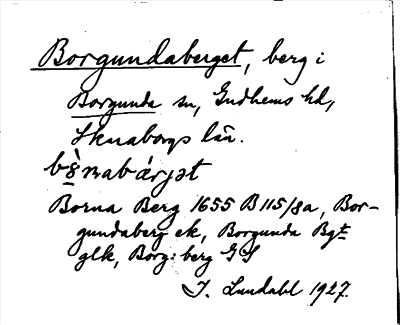 Borgundaberget, berg i
Borgunda sn, Gudhems hd,
Skaraborgs län.
Borna Berg 1655 B115/8a, Bor-
gundaberg ek, Borgunda Bgt
glk, Borg:berg GS
I. Lundahl 1927.